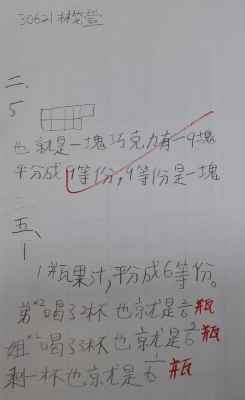 30621 林苡萱
二、
5
也就是一塊巧克力有一9塊
平分成9等份，9等份是一塊
五、
1
1瓶果汁，平分成6等份。
弟*2喝了2杯也就是2/6瓶
姐*3喝了3杯也就是3/6瓶
剩一杯也就是1/6瓶